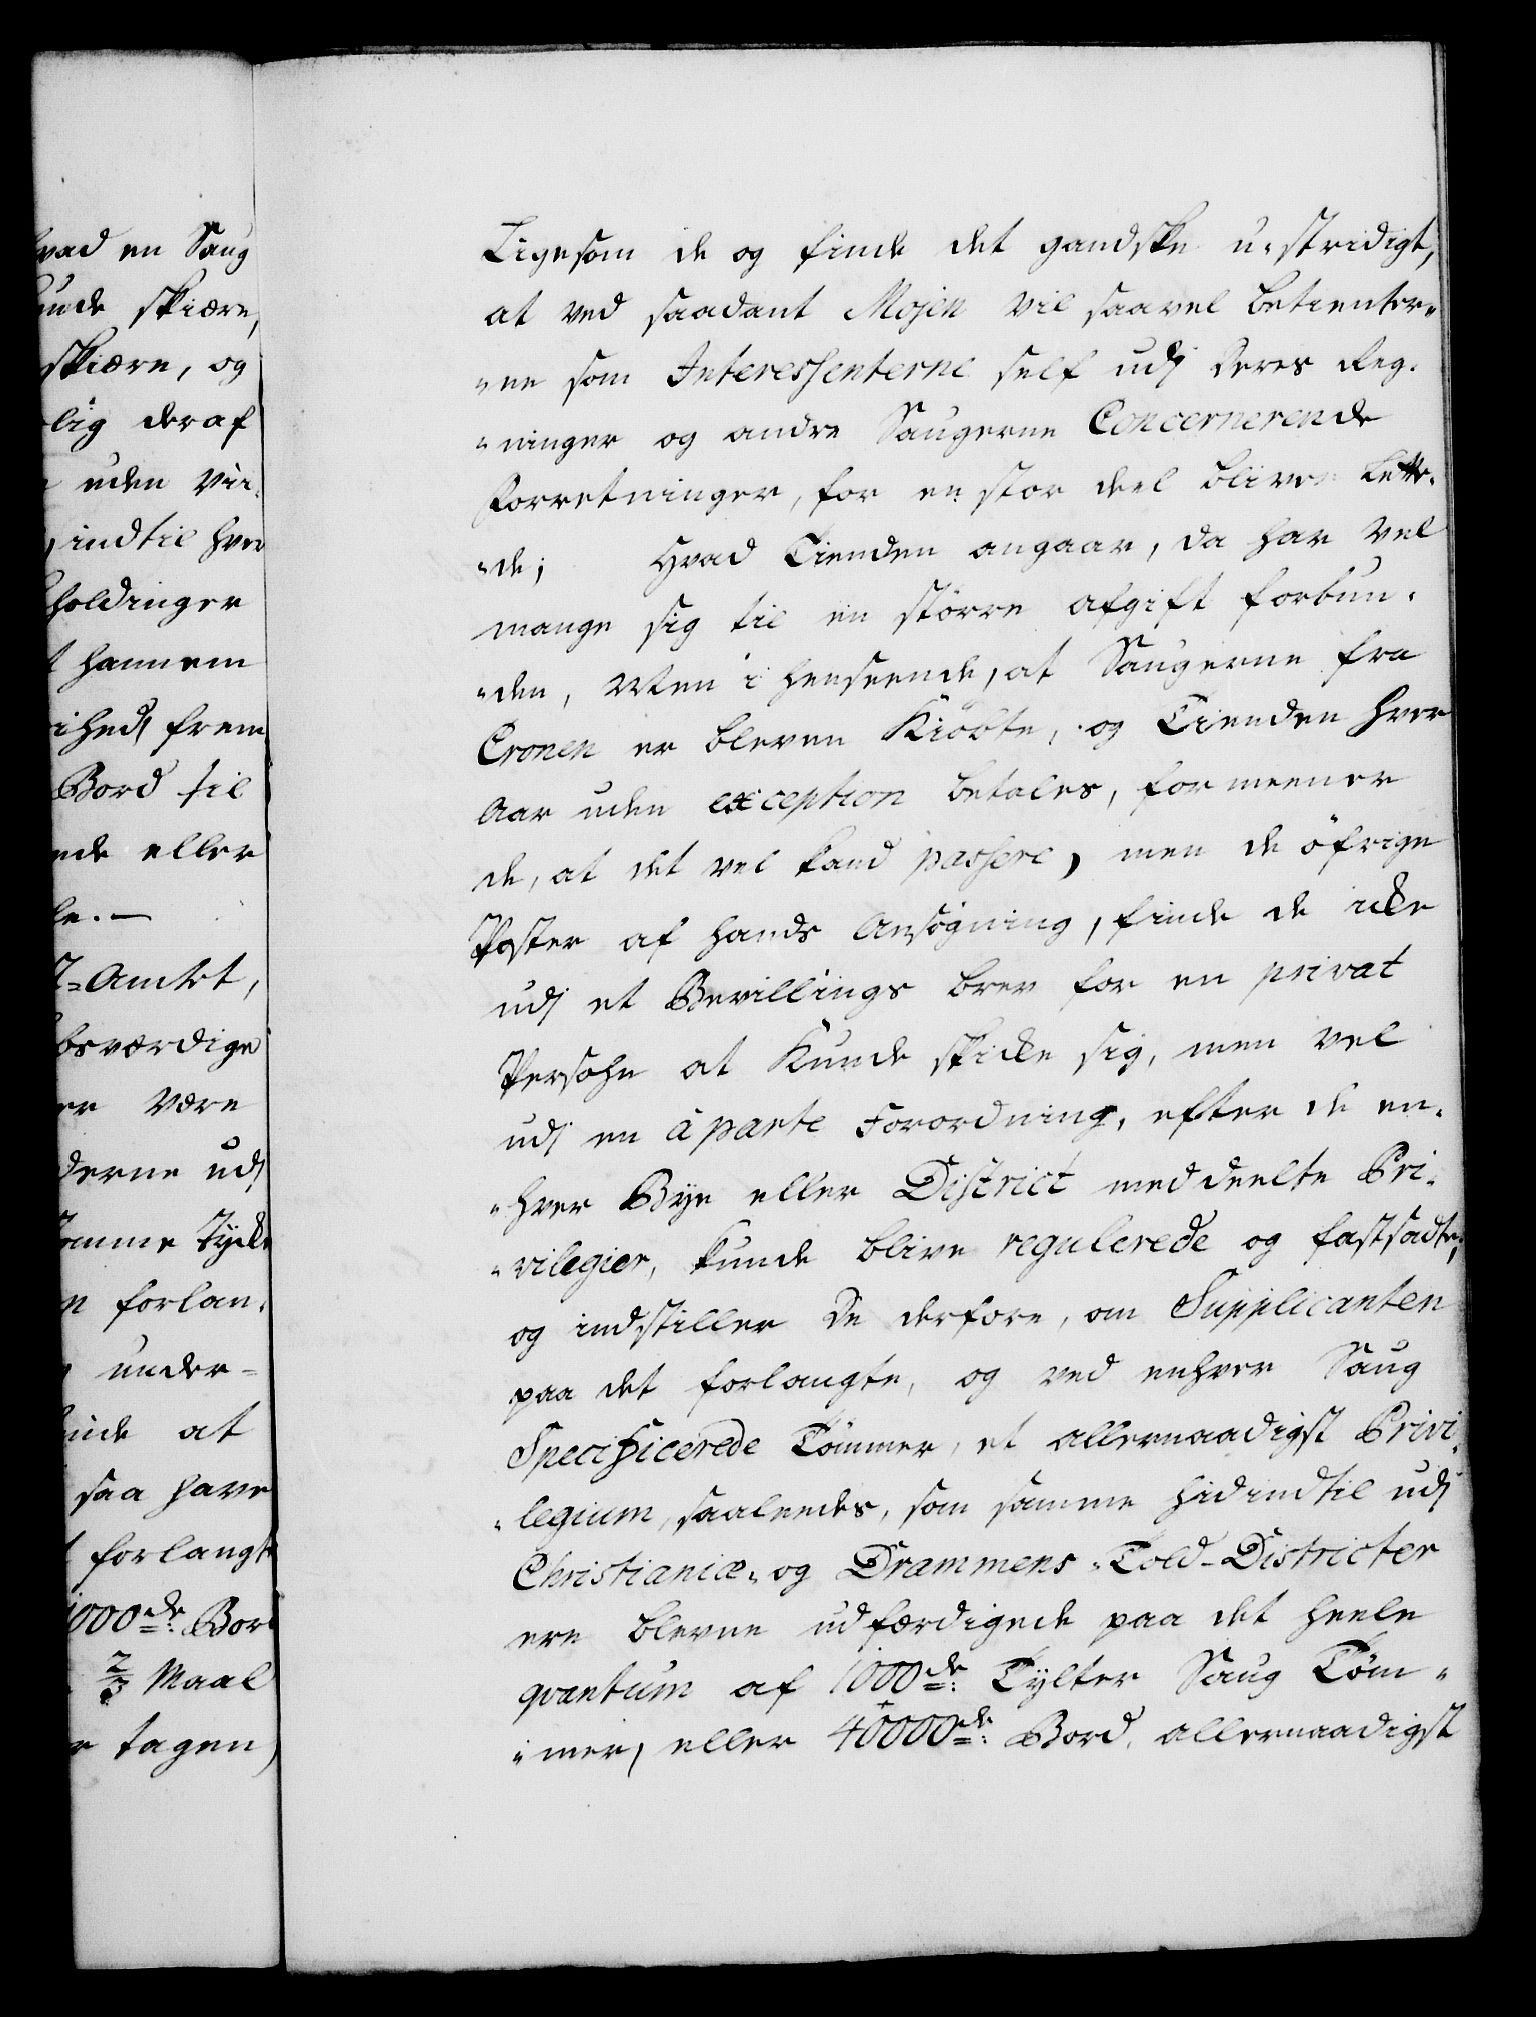 vad en Saug
unde skiære,
skiære, og
lig deraf
uden Vii-
, indtil hver
holdinger
t hannem
ihed, frem
Bord til
nde eller
le. —
T=Amtet,
bsværdige
er være
derne udj
omme Tycke
n forlan-
under=
inde at
saa have
t forlangte
1000de: Bord
2/3 Maal
r tagen,
Ligesom de og finde det gandske u-stridigt,
at ved saadant Mojen vil saavel betienter-
-ne som Interessenterne self udj deres Reg-
-ninger og andre Saugerne Concernerende
Forretninger, for en stor deel bliver lette-
-de; Hvad Tienden angaar, da har vel
mange sig til en større afgift forbun-
-den, Men i henseende, at Saugerne fra
Cronen er bleven Kiøbte, og Tienden hver
Aar uden exception betales, formeener
de, at det vel kand passere, men de øfrige
Poster af hands Ansøgning, finde de icke
udj et Bevillings brev for en privat
Persohn at Kunde skicke sig, men vel
udj en â parte Forordning, efter de en-
-hver Bye eller District meddeelte Pri-
-vilegier, kunde blive regulerede og fastsadte,
og indstiller De derfore, om Supplicanten
paa det forlangte, og ved enhver Saug
Specificerede Tømmer, et allernaadigst Privi-
-legium, saaleedes, som samme hidindtil udj
Christianiæ- og Drammens-Told-Districter
ere blevne udfærdigede paa det heele
qvantum af 1000de: Tylter Saug Tøm-
-mer, eller 40000de: Bord, allernaadigst